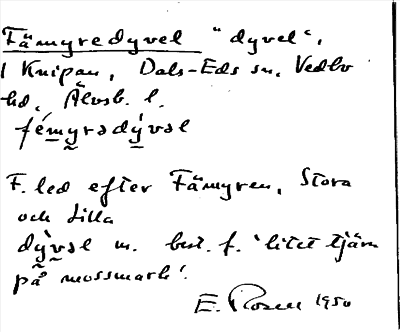 Fämyredyvel "dyvel",
i Knipan, Dals-Eds sn, Vedbo
hd, Älvsb. l.
fémyrədỳvəl
F. led efter Fämyren, Stora
och Lilla
dỳvəl m. best. f. 'litet tjärn
på mossmark'.
E. Rosen 1950